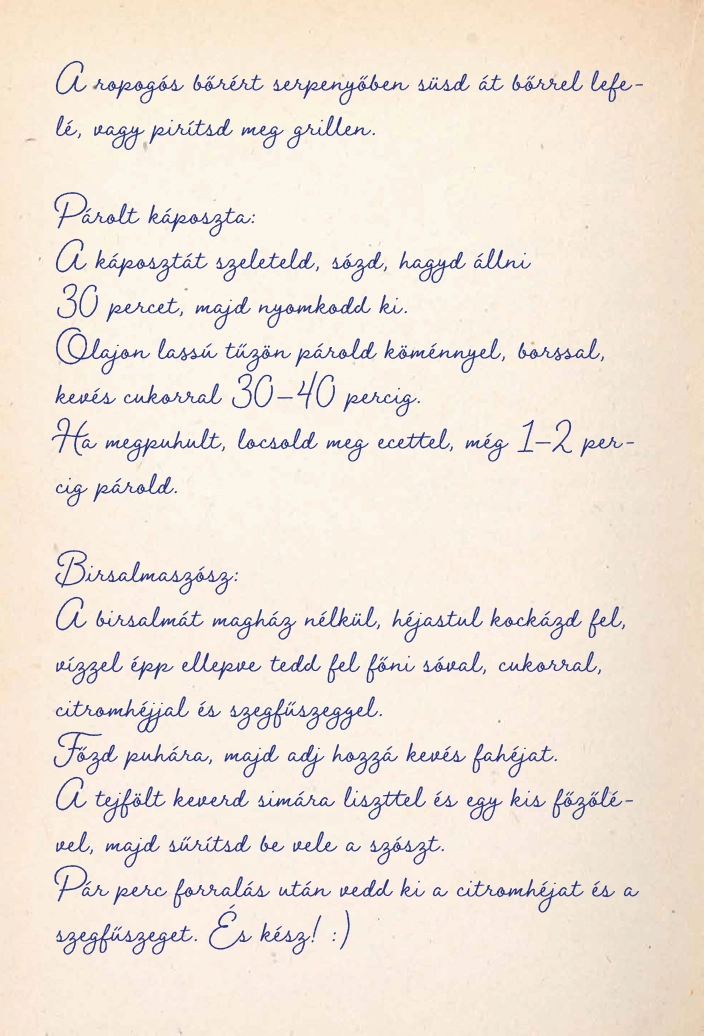 A ropogós bőrért serpenyőben süsd át bőrrel lefe-
lé, vagy pirítsd meg grillen.
Párolt káposzta:
A káposztát szeleteld, sózd, hagyd állni
30 percet, majd nyomkodd ki.
Olajon lassú tűzön párold köménnyel, borssal,
kevés cukorral 30–40 percig.
Ha megpuhult, locsold meg ecettel, még 1–2 per-
cig párold.
Birsalmaszósz:
A birsalmát magház nélkül, héjastul kockázd fel,
vízzel épp ellepve tedd fel főni sóval, cukorral,
citromhéjjal és szegfűszeggel.
Főzd puhára, majd adj hozzá kevés fahéjat.
A tejfölt keverd simára liszttel és egy kis főzőlé-
vel, majd sűrítsd be vele a szószt.
Pár perc forralás után vedd ki a citromhéjat és a
szegfűszeget. És kész! :)